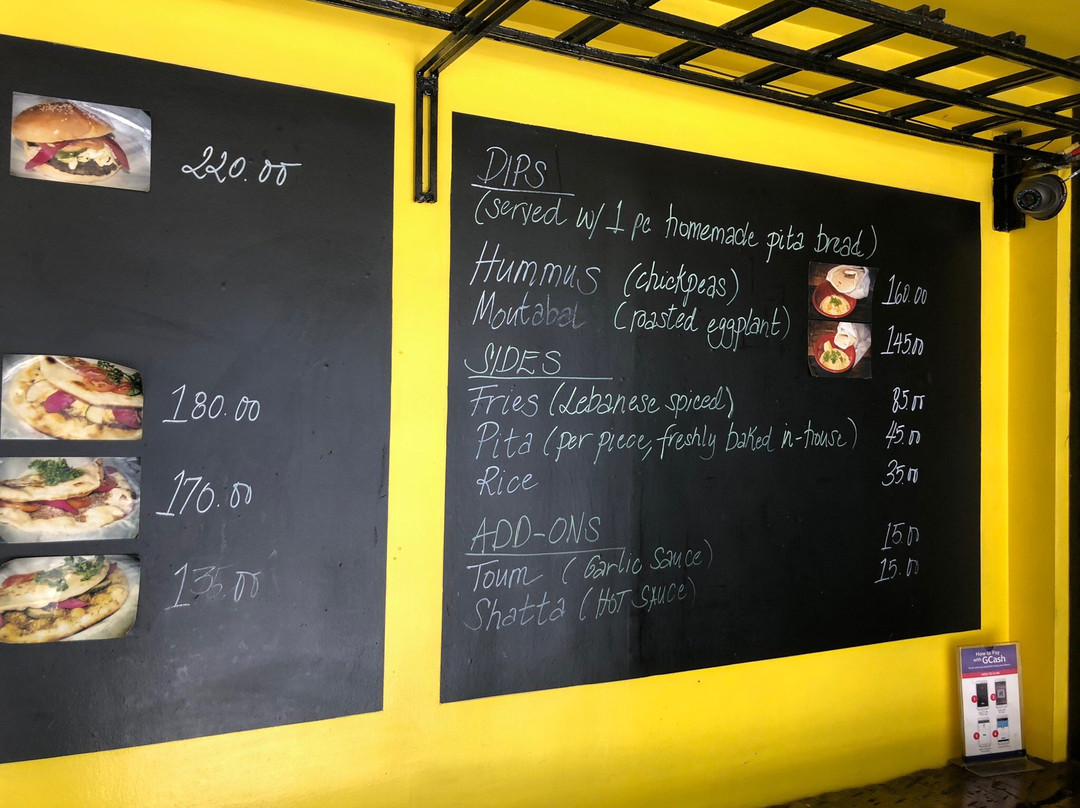 220.00
180.00
170.00
135.00
DIPS
(served w/ 1 pc homemade pita bread)
Hummus (chickpeas) 160.00
Moutabal (roasted eggplant) 145.00
SIDES
Fries (Lebanese spiced) 85.00
Pita (per piece, freshly baked in-house) 45.00
Rice 35.00
ADD-ONS
Toum (Garlic Sauce) 15.00
Shatta (HOT SAUCE) 15.00
How to Pay
with GCash